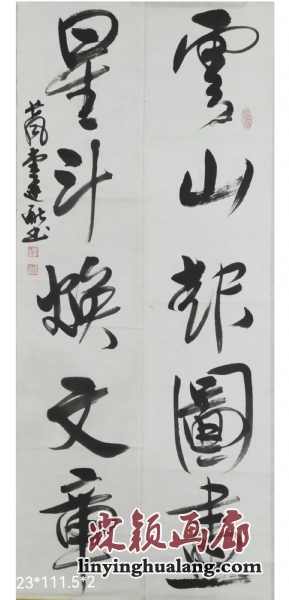 雲山起圖畫
星斗煥文章
23*111.5*2
霖颖画廊
linyinghualang.com